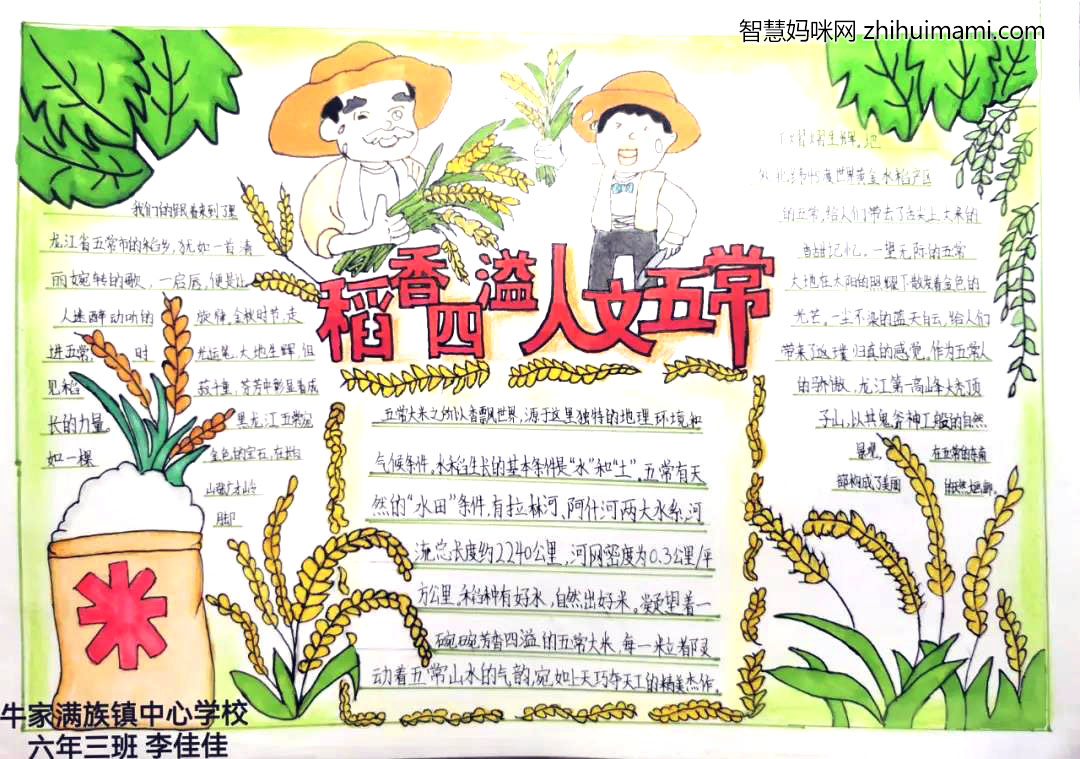 智慧妈咪网 zhihuimami.com
稻香四溢人文五常
我们的跟着来到了黑
龙江省五常市的稻乡,犹如一首清
丽婉转的歌,一启唇,便是让
人迷醉动听的 旋律。金秋时节,走
进五常 时 光运笔,大地生辉,但
见稻 菽千重,芬芳中彰显着成
长的力量。 黑龙江五常宛
如一棵 金色的宝石,在长白
山张广才岭
脚
五常大米之所以香飘世界,源于这里独特的地理环境和
气候条件,水稻生长的基本条件是“水”和“土”。五常有天
然的“水田”条件,有拉林河、阿什河两大水系,河
流总长度约2240公里,河网密度为0.3公里/平
方公里。稻种有好水,自然出好米。凝望着一
碗碗芳香四溢的五常大米,每一米立着跃
动着五常山水的气韵,宛如上天巧夺天工的精美杰作。
熠熠生辉,地
北纬45度世界黄金水稻产区
的五常,给人们带去了舌尖上大米的
香甜记忆。一望无际的五常
大地在太阳的照耀下散发着金色的
光芒,一尘不染的蓝天白云,给人们
带来了返璞归真的感觉,作为五常人
的骄傲,龙江第一高峰大秃顶
子山,以其鬼斧神工般的自然
景观, 在五常的东南
部构成了美丽
米
牛家满族镇中心学校
六年三班 李佳佳